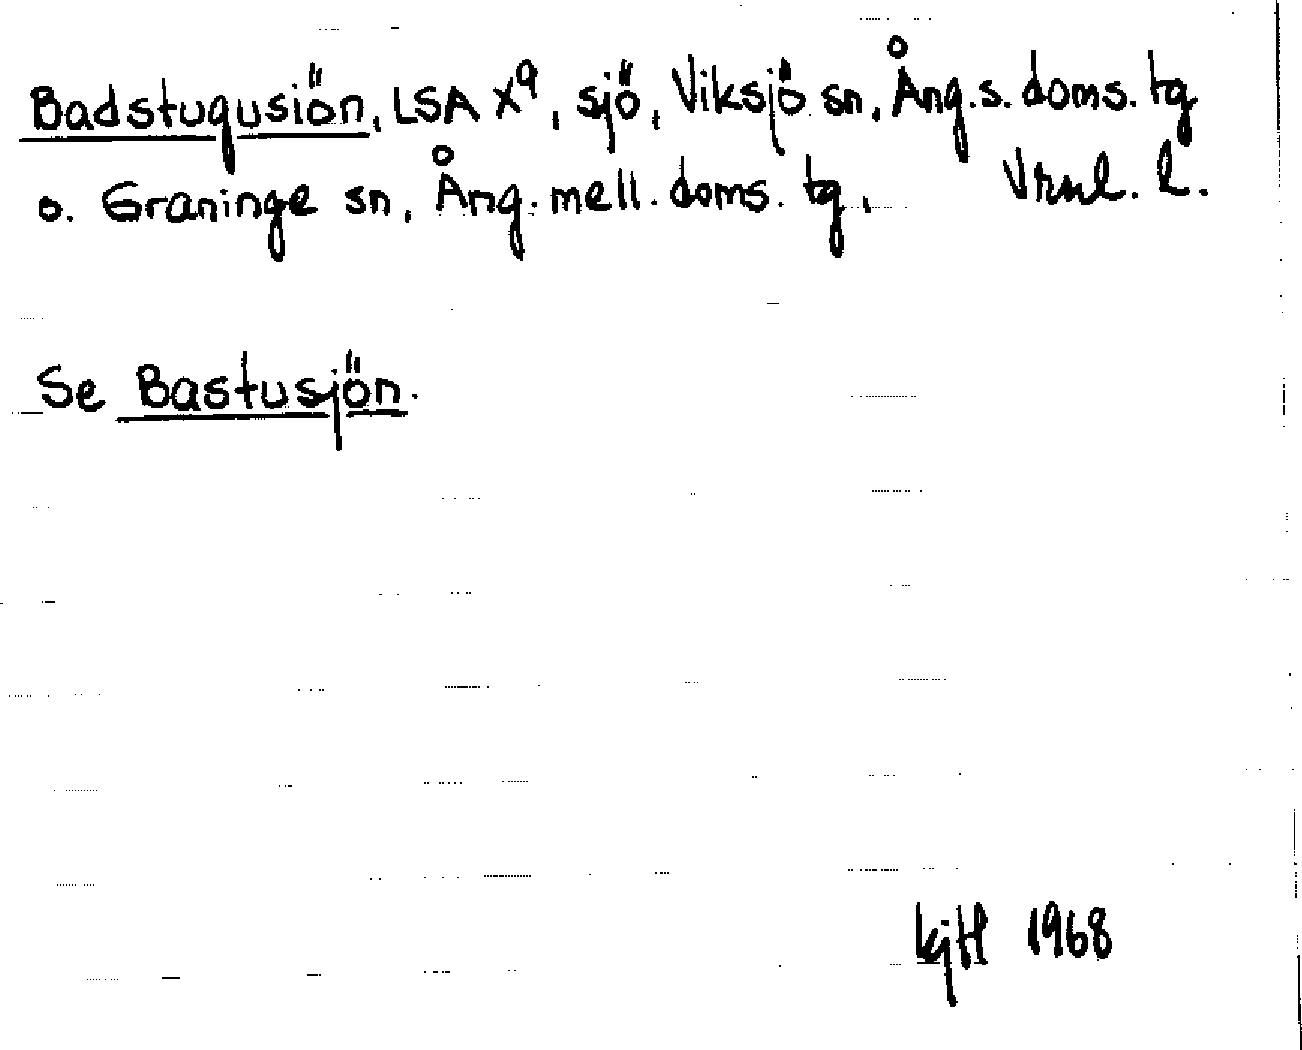 Badstugusiön, LSA X⁹, sjö, Viksjö sn, Ång.s. doms. tg
o. Graninge sn, Ång. mell. doms. tg. Vrml. l.
Se Bastusjön.
KjH 1968